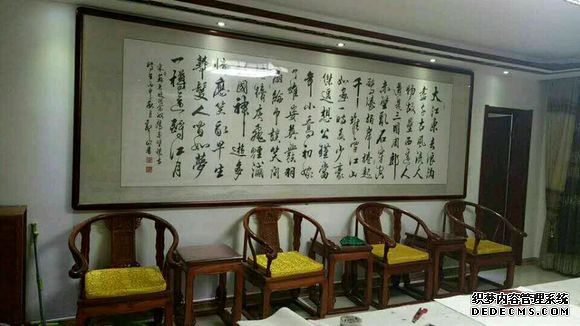 大江東去浪淘
盡千古風流人
物故壘西邊人
道是三國周郎
赤壁亂石穿空
驚濤拍岸捲起
千堆雪江山
如畫一時多少豪
傑遙想公瑾當
年小喬初嫁
了雄姿英發羽
扇綸巾談笑間
檣櫓灰飛煙滅
故國神遊多
情應笑我早生
華髮人間如夢
一樽還酹江月
织梦内容管理系统
DEDECMS.COM